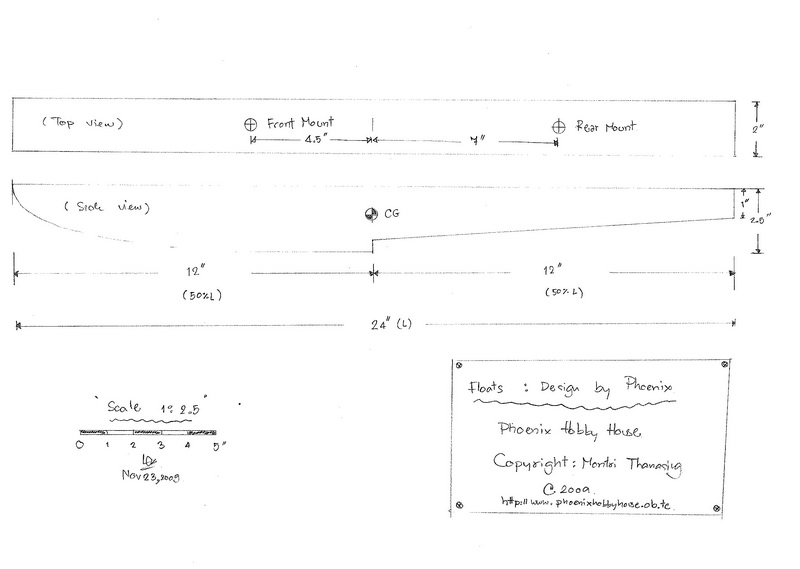 (Top view)
Front Mount
Rear Mount
4.5"
7"
2"
(Side view)
CG
1"
2.5"
12"
12"
(50%L)
(50%L)
24" (L)
Scale 1:2.5"
0 1 2 3 4 5"
Nov 23, 2009
Floats : Design by Phoenix
Phoenix Hobby House
Copyright : Montri Thanasing
© 2009.
http://www.phoenixhobbyhouse.ob.tc